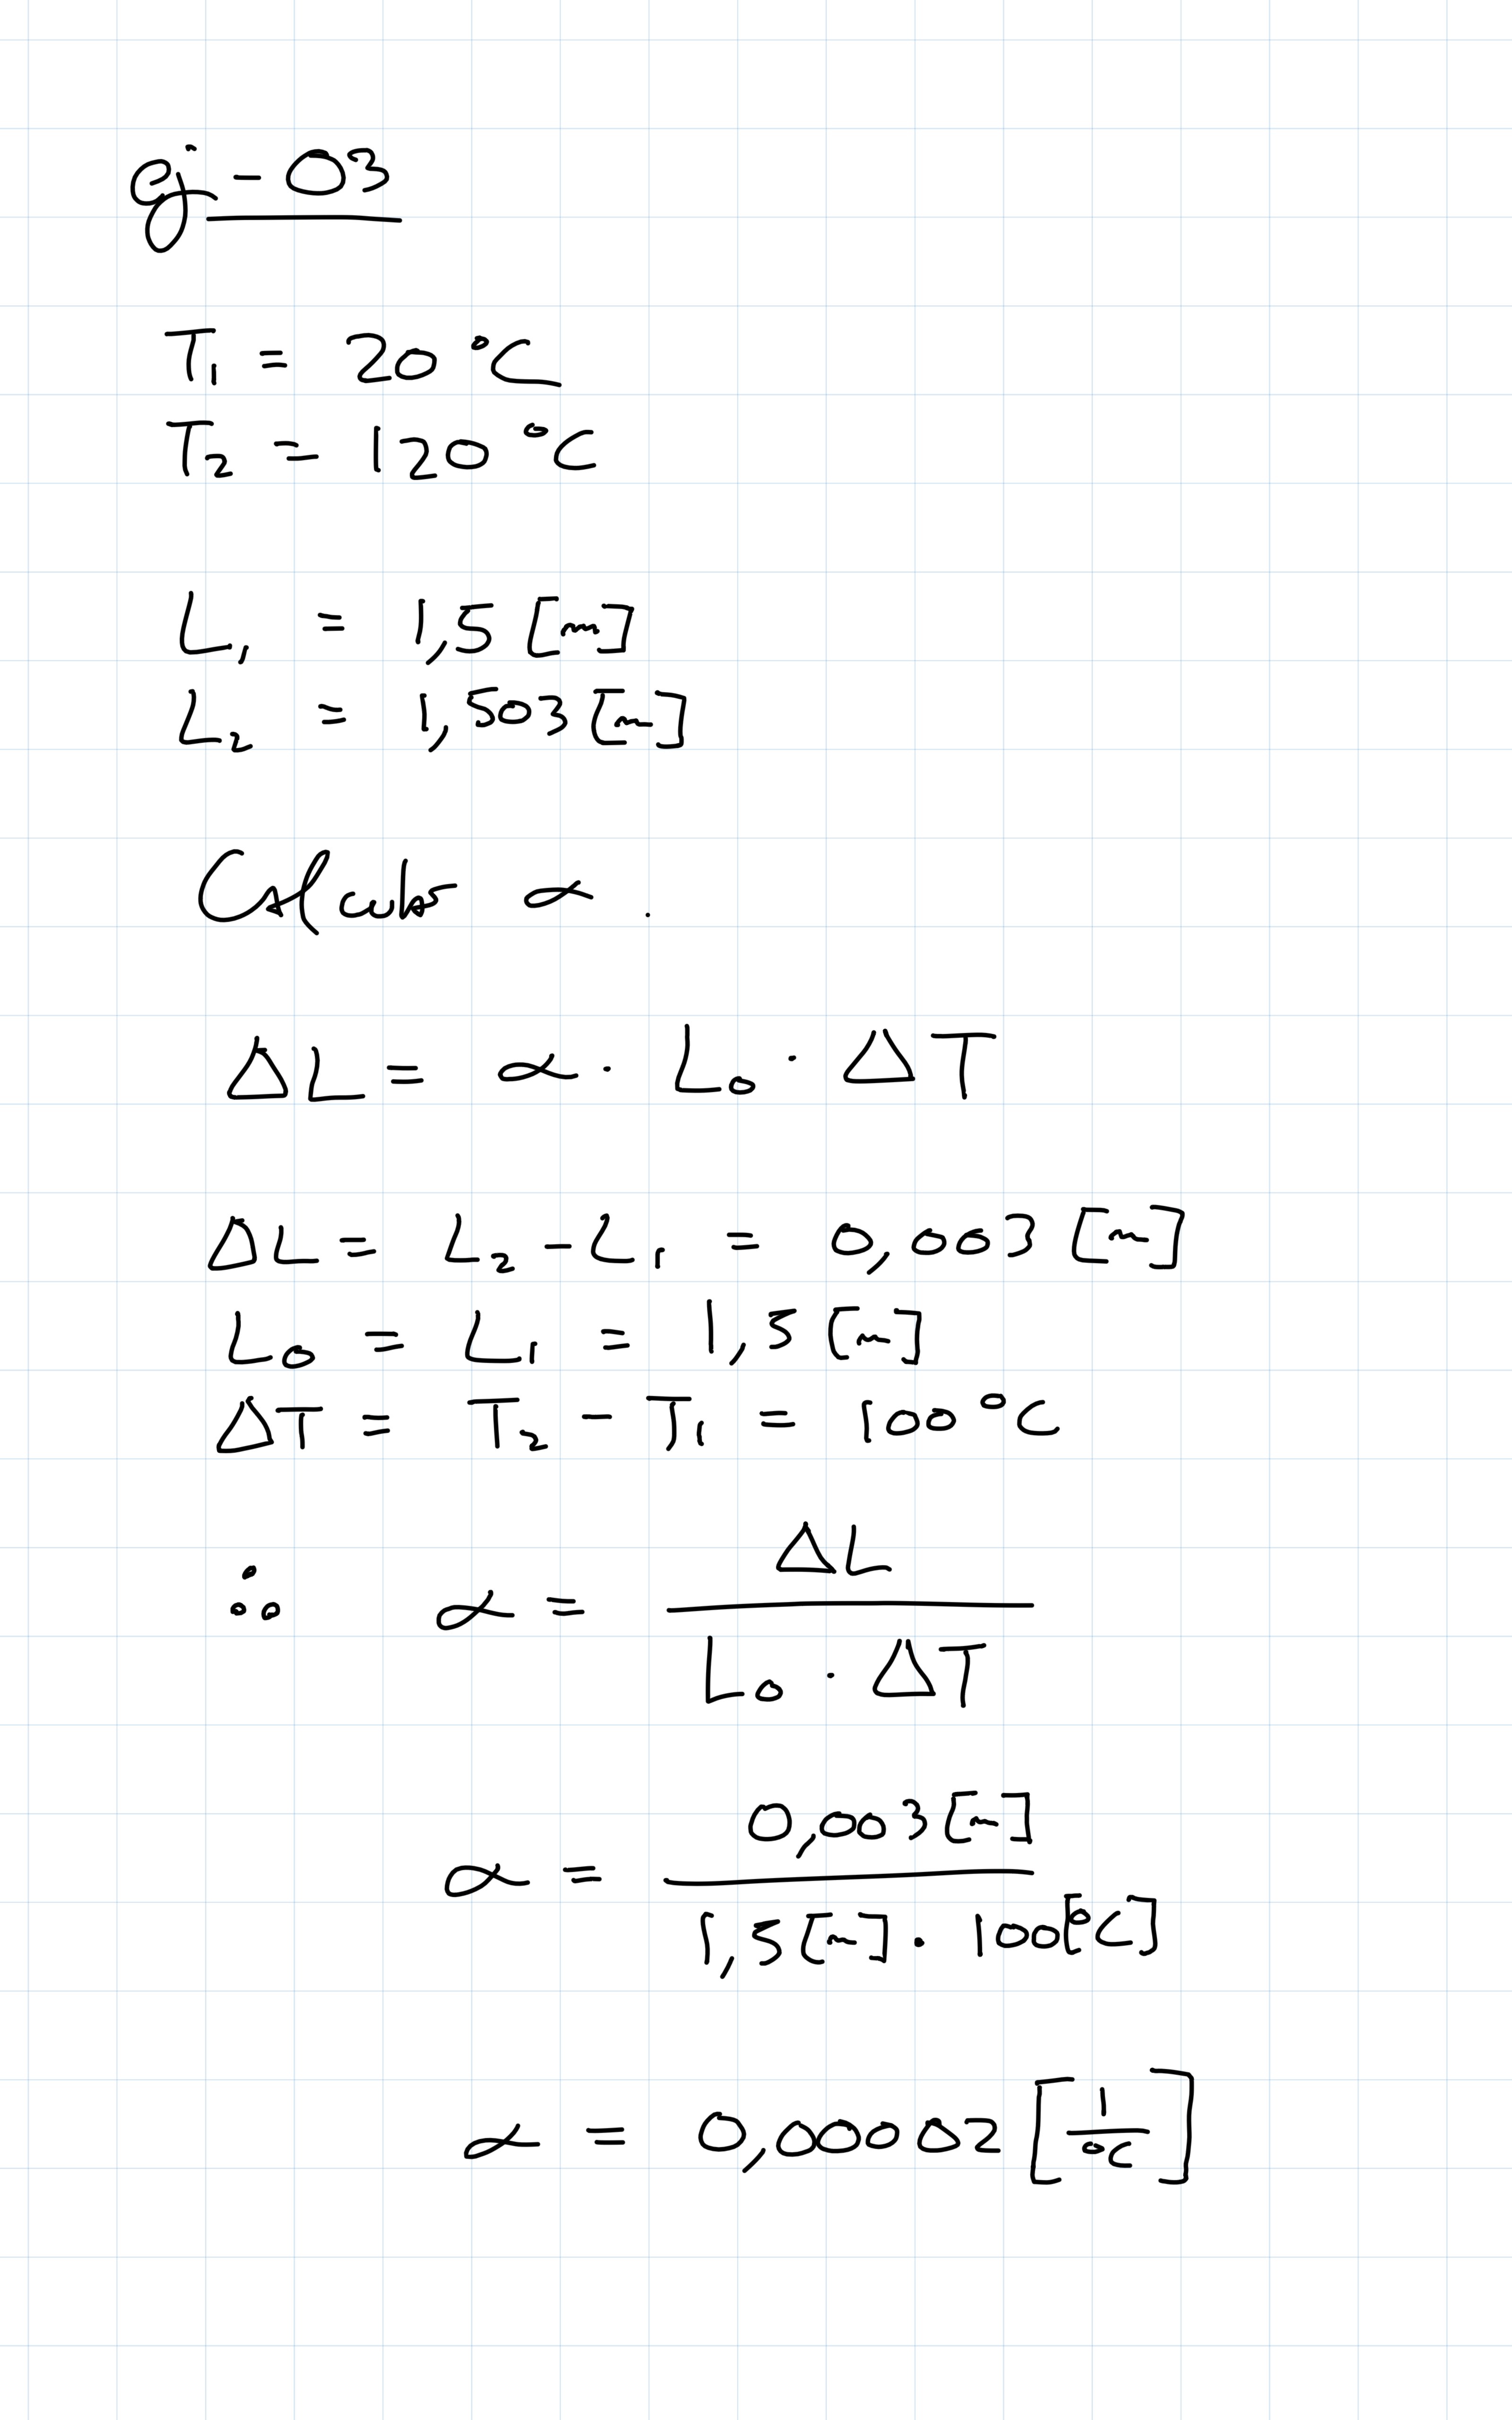 ej - 03
T₁ = 20 °C
T₂ = 120 °C
L₁ = 1,5 [m]
L₂ = 1,503 [m]
Calcular α.
ΔL = α · L₀ · ΔT
ΔL = L₂ - L₁ = 0,003 [m]
L₀ = L₁ = 1,5 [m]
ΔT = T₂ - T₁ = 100 °C
∴ α = ΔL / L₀ · ΔT
α = 0,003 [m] / 1,5 [m] · 100 [°C]
α = 0,00002 [1/°C]